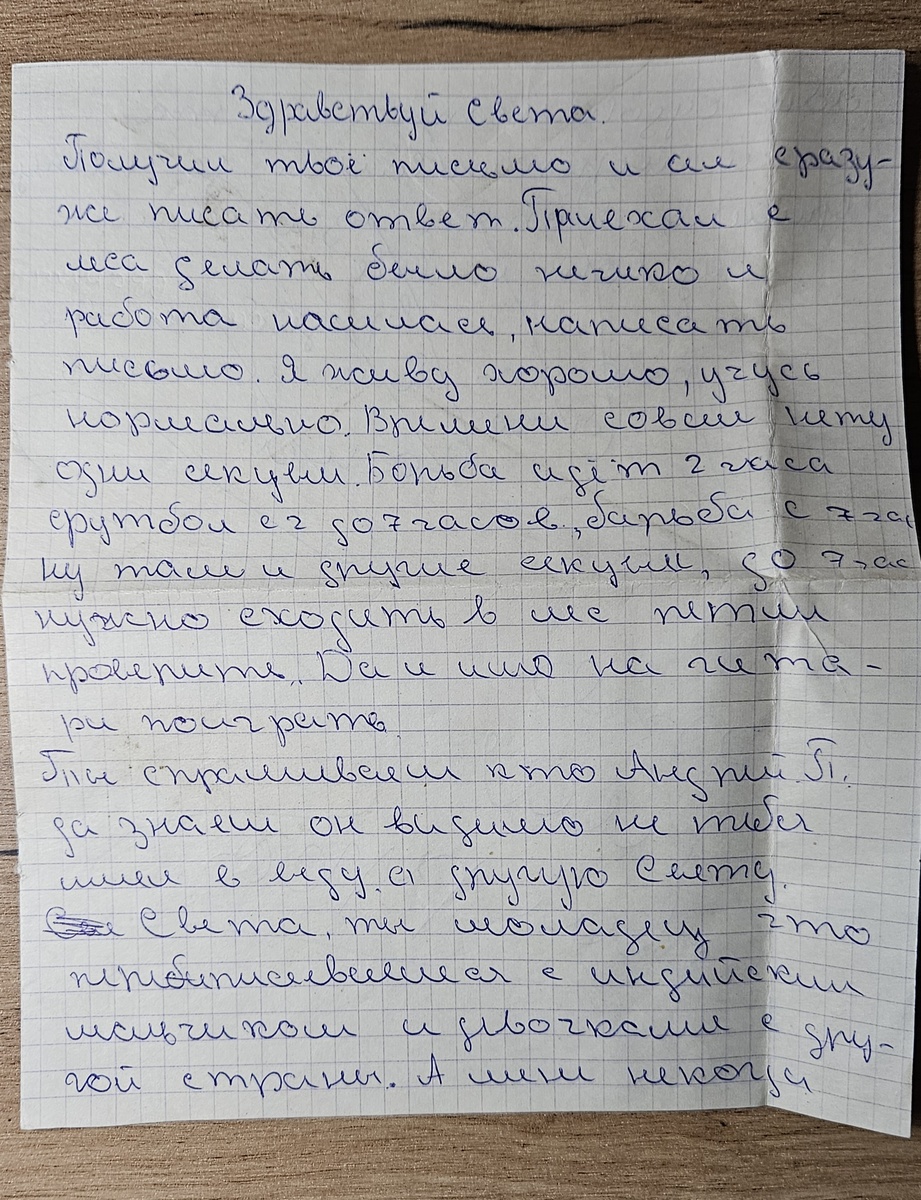 Здравствуй Света.
Получил твоё письмо и сил сразу-
же писать ответ. Приехал с
леса делать было нечико и
работа насилась, написать
письмо. Я живу хорошо, учусь
нормально. Вримини совсем нету
одни секции. Борьба идёт 2 часа
футбол с 2 до 7 часов, барьба с 7 час
ну там и другие секции, до 7 час
нужно сходить в лес петли
проверить. Да и ишо на гита-
ри поиграть
Ты спрашиваеш кто Андрей П.
да знаеш он видимо не тибя
имел в виду, а другую Свету.
Света, ты моладец что
с индийским
мальчиком и девочками с дру-
гой страны. А мине некогда